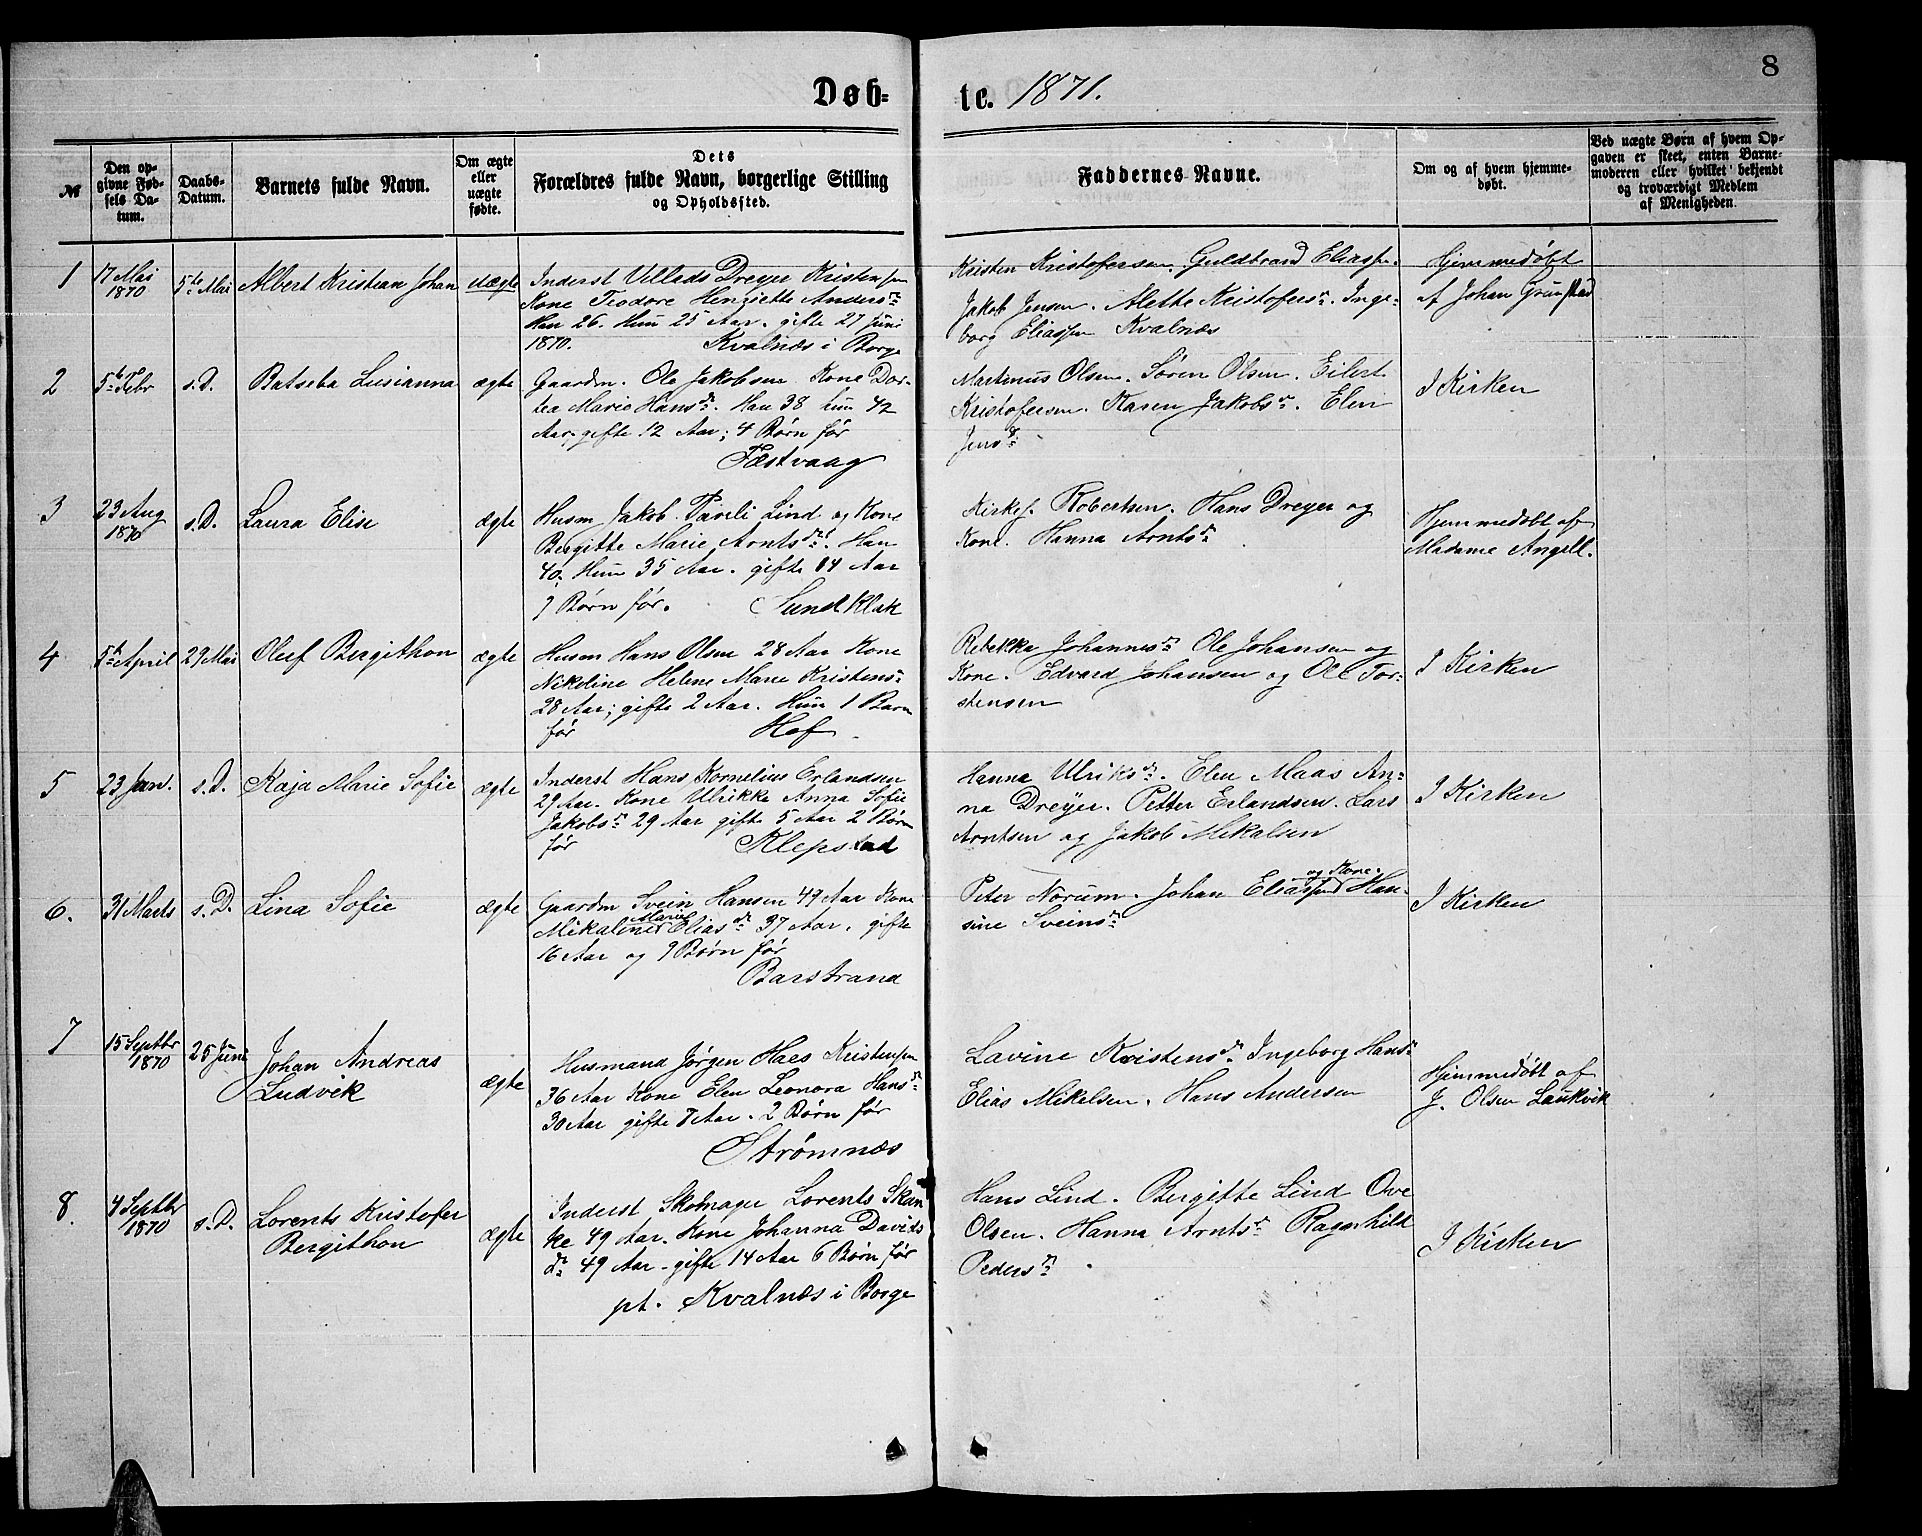 8
Døb= te. 1871.
№
Den op-
givne Fød-
sels Da-
tum.
Daabs-
Datum.
Barnets fulde Navn.
Om ægte
eller
uægte
fødte.
Dets
Forældres fulde Navn, borgerlige Stilling
og Opholdssted.
Faddernes Navne.
Om og af hvem hjemme-
døbt.
Ved uægte Børn af hvem Op-
gaven er skeet, enten Barne-
moderen eller hvilket bekjendt
og troværdigt Medlem
af Menigheden.
1
17 Mai
1870
5te Mai
Albert Kristian Johan
uægte
Inderst Villads Dreyer Kristensen
Kone Teodore Henriette Andersdr
Han 26. Hun 25 Aar. gifte 27 Juni
1870. Kvalnæs i Borge
Kristen Kristofersen. Guldbrand Eliassen.
Jakob Jensen. Alette Kristofersdr. Inge-
borg Eliassen Kvalnæs
Hjemmedøbt
af Johan Grunstad
2
5te Febr
s.D.
Batseba Lusianna
ægte
Gaardm. Ole Jakobsen Kone Dor-
tea Marie Hansdr. Han 38 hun 42
Aar, gifte 12 Aar; 4 Børn før
Fæstvaag
Martinus Olsen. Søren Olsen. Eilert
Kristofersen. Karen Jakobsdr. Elen
Jensdr
I Kirken
3
23 Aug
1870
s.D.
Laura Elise
ægte
Husm Jakob Paveli Lind og Kone
Bergitte Marie Arntsdr. Han
40. Hun 35 Aar. gifte 14 Aar
9 Børn før. Sundklak
Kirkes. Robertsen. Hans Dreyer og
Kone. Hanna Arntsdr
Hjemmedøbt af
Madame Angell.
4
5te April
29 Mai
Oluf Bergithon
ægte
Husm Hans Olsen 28 Aar Kone
Nikoline Helene Marie Kristensdr
28 Aar; gifte 2 Aar. Hun 1 Barn
før Hof
Rebekka Johannesdr Ole Johansen og
Kone. Edvard Johansen og Ole Tor-
stensen
I Kirken
5
23 Jan.
s.D.
Kaja Marie Sofie
ægte
Inderst Hans Kornelius Erlandsen
29 Aar. Kone Ulrikke Anna Sofie
Jakobsdr 29 Aar gifte 5 Aar 2 Børn
før Klepstad
Hanna Ulriksdr. Elen Maas An-
na Dreyer. Petter Erlandsen. Lars
Arntsen og Jakob Mikalsen
I Kirken
6.
31 Marts
s.D.
Lina Sofie
ægte
Gaardm Svein Hansen 47 Aar Kone
Mikaline Marie Eliasdr 37 Aar. gifte
16 Aar og 9 Børn før
Barstrand
Peter Norum. Johan Eliassen og Kone. Han-
sine Sveinsdr
I Kirken
7
15 Septbr
1870
25 Juni
Johan Andreas
Ludvik
ægte
Husmand Jørgen Haes Kristensen
36 Aar Kone Elen Leonora Hansdr
30 Aar gifte 7 Aar. 2 Børn før
Strømnæs
Lavine Kristensdr Ingeborg Hansdr
Elias Mikelsen. Hans Andersen
Hjemmedøbt af
J. Olsen Laukvik
8.
4 Septbr
1870
s.D.
Lorents Kristofer
Bergithon
ægte
Inderst Skomager Lorents Skan
ke 49 Aar. Kone Johanna Davids
dr 49 Aar. gifte 14 Aar 6 Børn før
pt. Kvalnæs i Borge
Hans Lind. Bergitte Lind Ove
Olsen. Hanna Arntsdr Ragnhild
Pedersdr
I Kirken